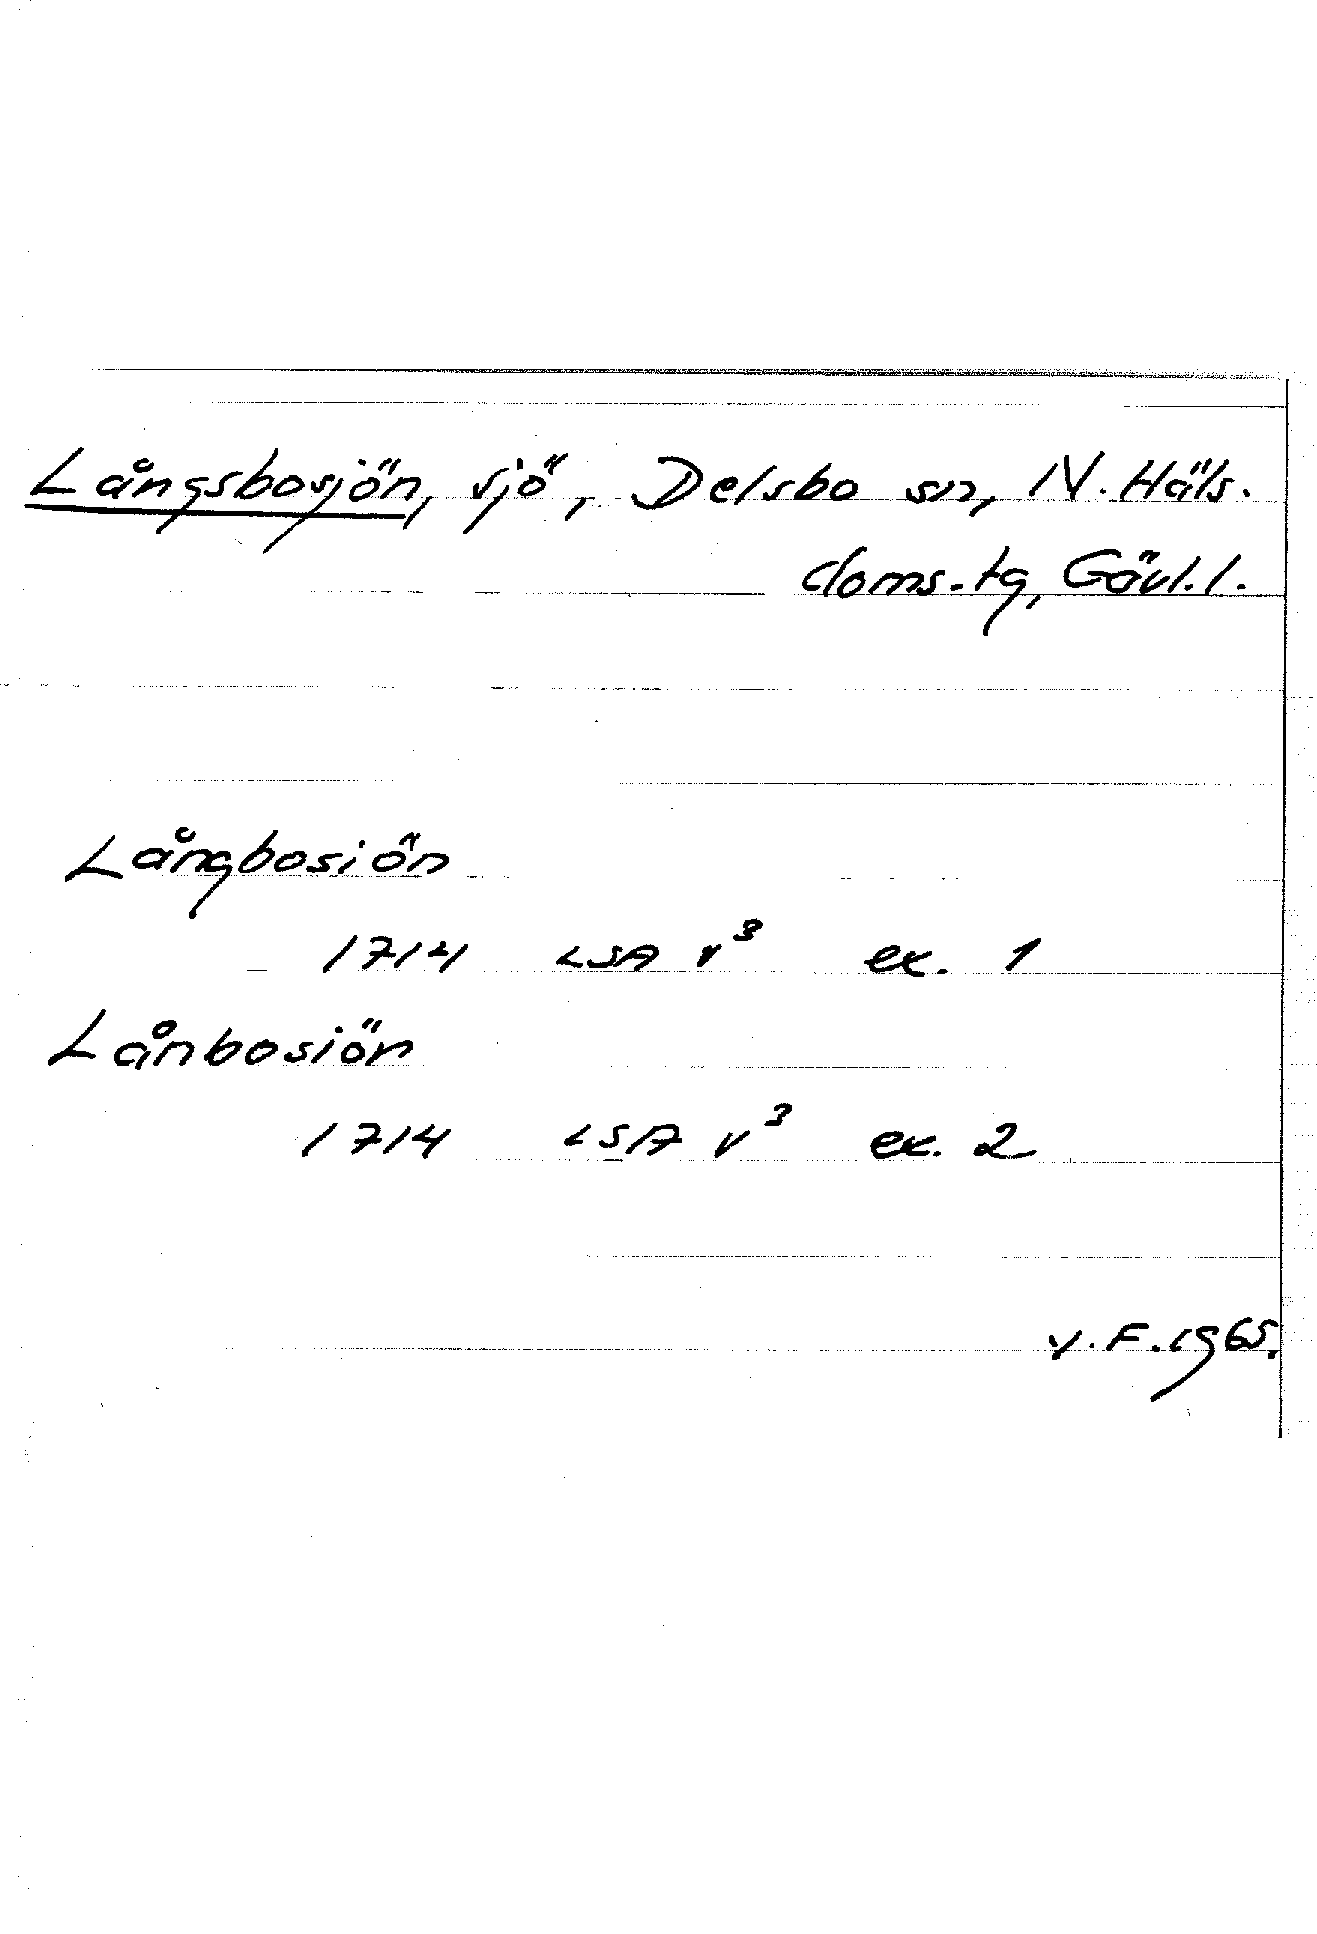 Långsbosjön, sjö, Delsbo sn, N. Häls.
doms.-tg, Gävl. l.
Långbosiön
1714 LSA v³ ex. 1
Lånbosiön
1714 LSA v³ ex. 2
V. F. 1965.